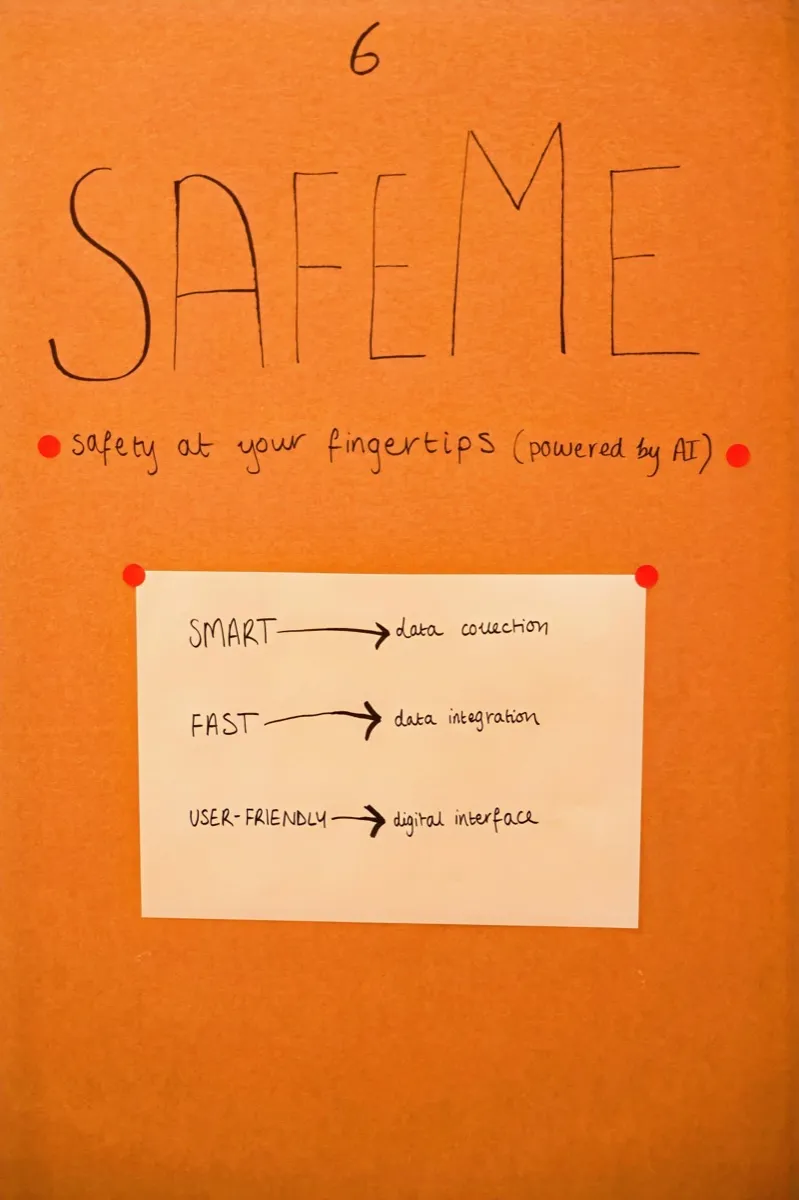 6
SAFEME
safety at your fingertips (powered by AI)
SMART → data collection
FAST → data integration
USER-FRIENDLY → digital interface